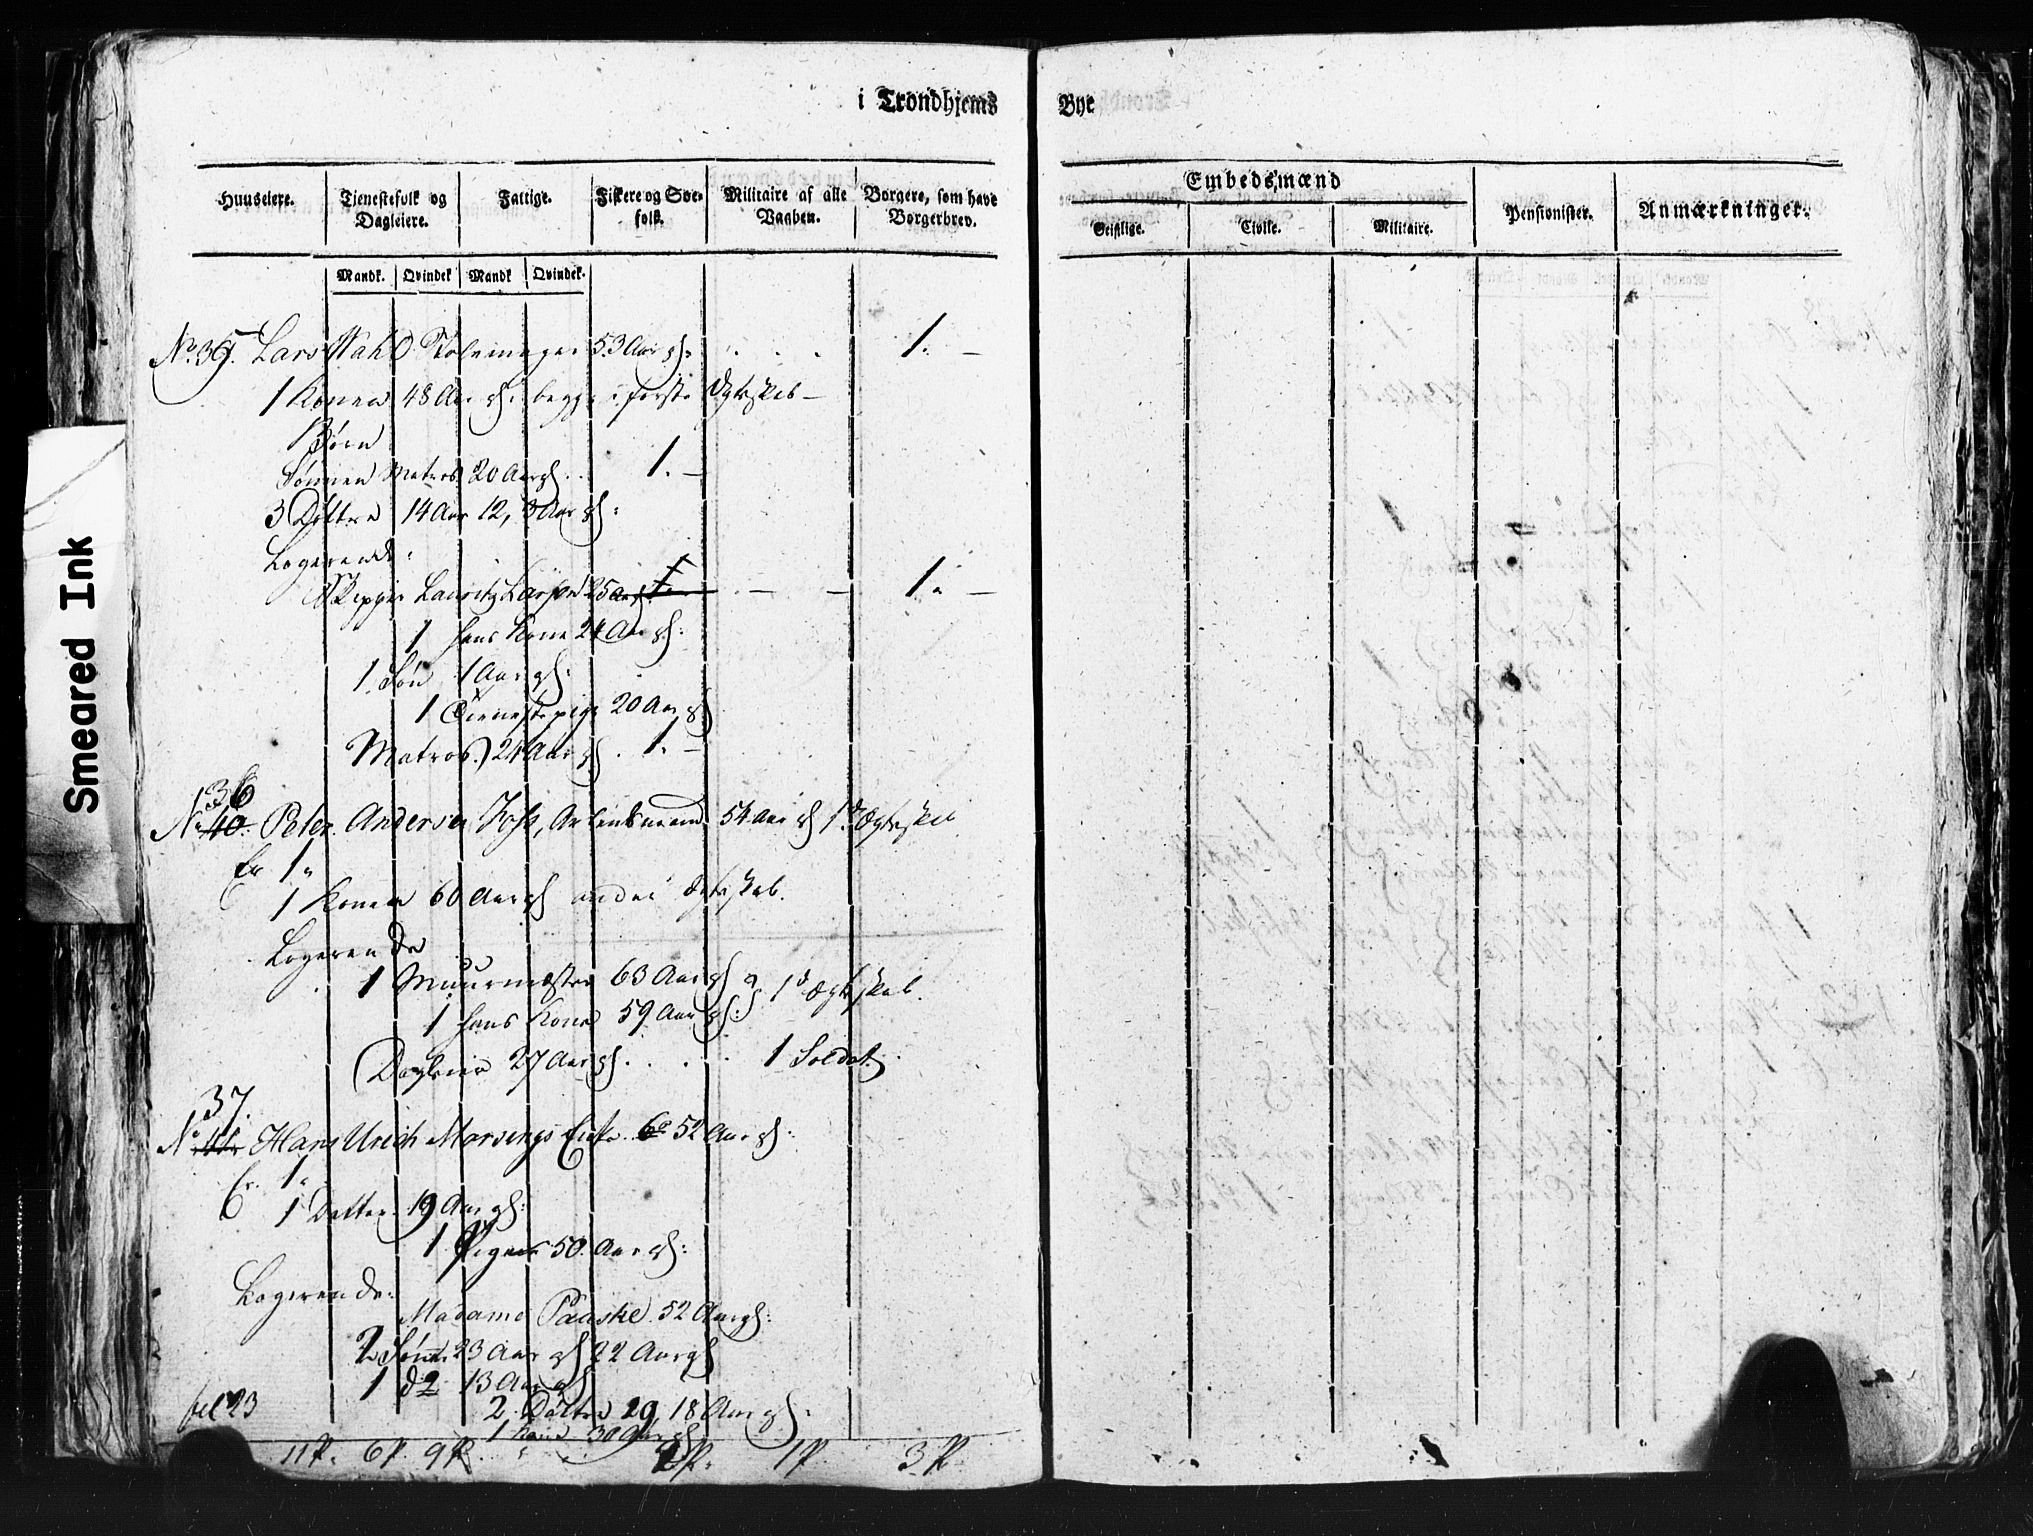 i Trondhjems Bye
Huuseiere. Tjenestefolk og Dagleiere. Fattige. Fiskere og Søefolk. Militaire af alle Vaaben. Borgere, som have Borgerbrev.
Embedsmænd
Geistlige. Civile. Militaire. Pensionister. Anmærkninger.
Mandk. Qvindek Mandk Qvindek.
No. 35. Lars Wahl 53 Aar gl. 1. –
1 Konen 48 Aar gl. begge i første Ægteskab –
Børn
Sønnen Matros 20 Aar gl. . 1. –
3 Døttre 14 Aar 12, 3 Aar gl:
Logerende:
Skipper Lauritz 25 Aar 1. – – 1. –
1 hans Kone 24 Aar gl:
1 Søn 1 Aar gl:
1 Tienestepige 20 Aar gl
Matros 24 Aar gl . 1. –
36
No 40. Peter Andersen Foss, Arbeidsmand 54 Aar gl 1te Ægteskab
Er 1.
1 Konen 60 Aar gl andet Ægteskab.
Logerende
1 Muurmæster 63 Aar gl 1te Ægteskab.
1 hans Kone 59 Aar gl:
Dagleier 27 Aar gl . . . . 1 Soldat.
37.
No 41. Hans Urich Enke 52 Aar gl:
Er. 1.
1 Datter 19 Aar gl:
1 Pigen 50 Aar gl:
Logerende:
Madame Paaske 52 Aar gl:
2 Sønner 23 Aar gl 22 Aar gl
1 do 13 Aar gl
2 Døttre 29, 18 Aar gl:
fol 23 1 30 Aar gl
11 P. 6 P. 9 P. 2 P. 1 P. 3 P.
Smeared Ink